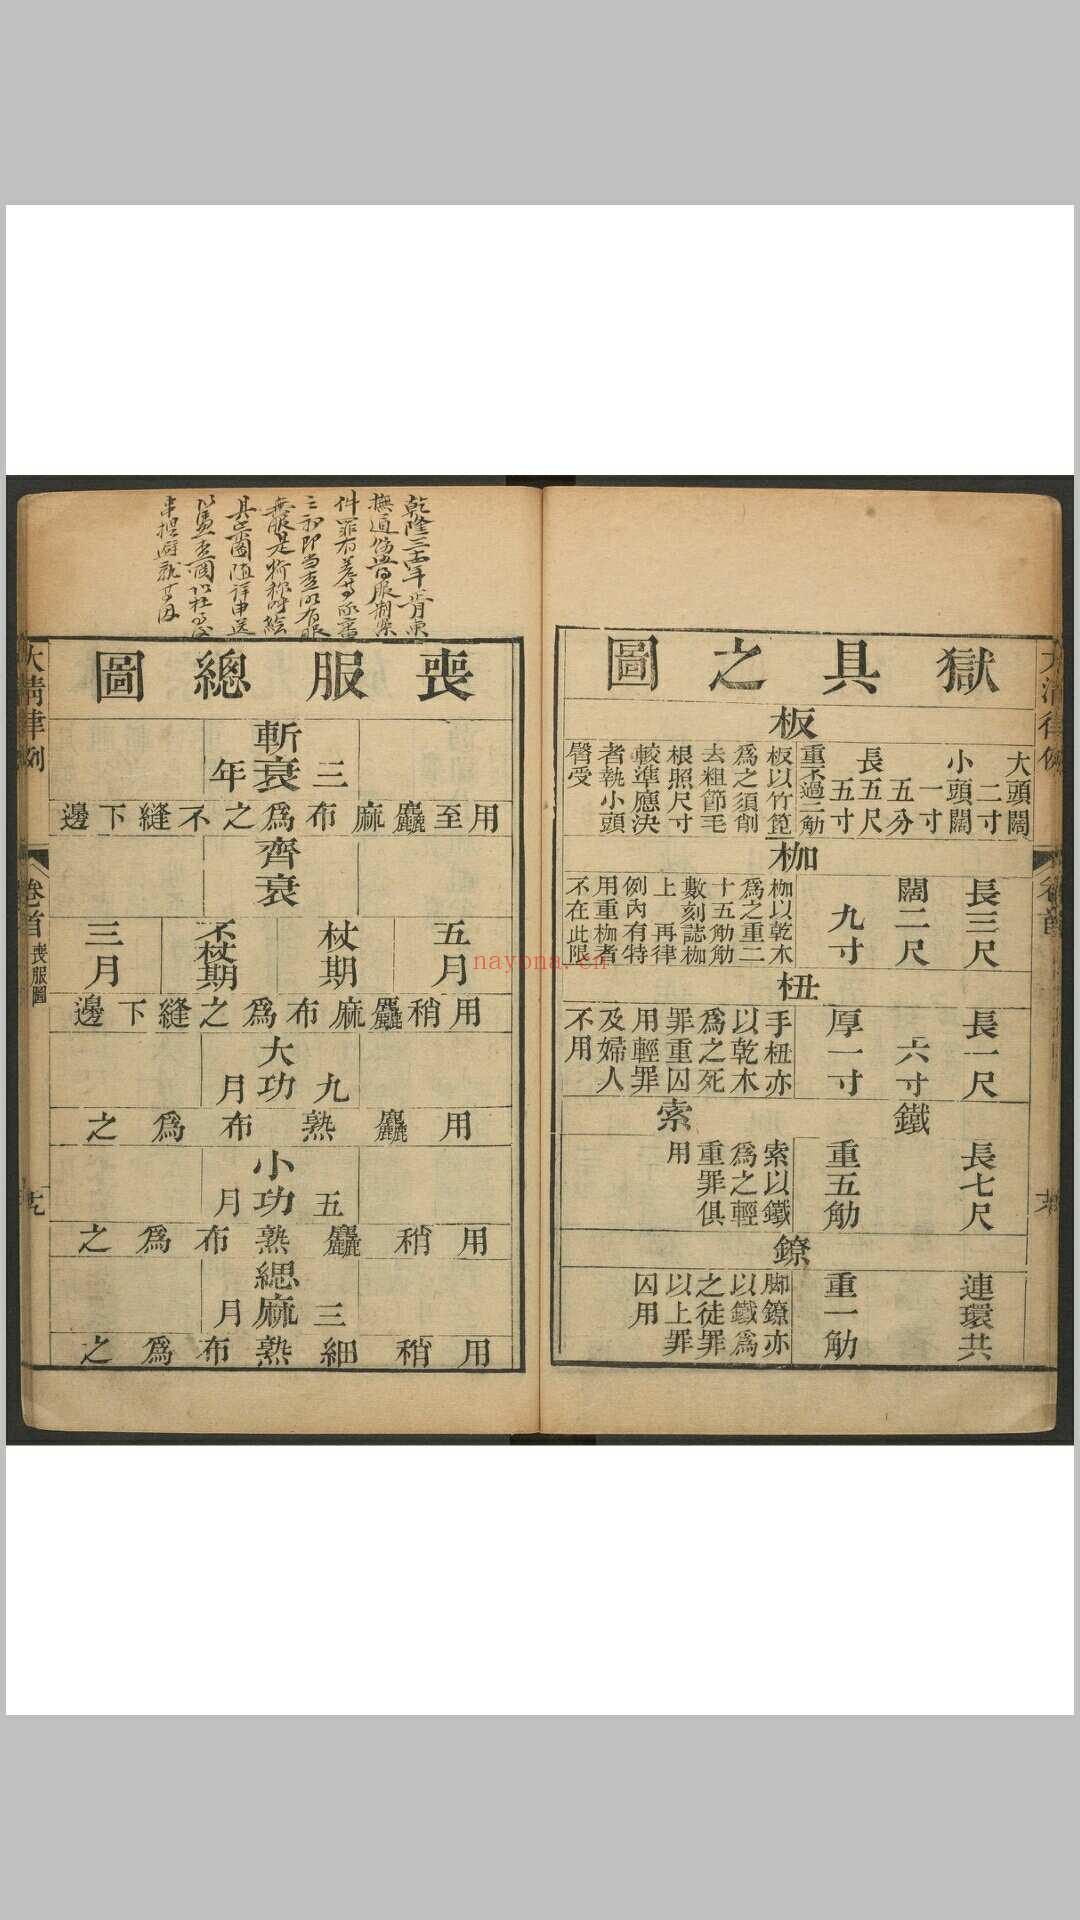 大清律例
獄具之圖
板
大頭闊
二寸
小頭闊
一寸
五分
長五尺
五寸
重不過二觔
板以竹箆
為之須削
去粗節毛
根照尺寸
較準應決
者執小頭
臀受
枷
長三尺
闊二尺
九寸
枷以乾木
為之重二
十五觔觔
數刻誌枷
上再律
例內有特
用重枷者
不在此限
杻
長一尺
六寸
厚一寸
手杻亦
以乾木
為之死
罪重囚
用輕罪
及婦人
不用
鐵索
長七尺
重五觔
索以鐵
為之輕
重罪俱
用
鐐
連環共
重一觔
脚鐐亦
以鐵為
之徒罪
以上罪
囚用
喪服總圖
斬衰
三年
用至麤麻布為之不縫下邊
齊衰
五月
杖期
不杖期
三月
用稍麤麻布為之縫下邊
大功
九月
用麤熟布為之
小功
五月
用稍麤熟布為之
緦麻
三月
用稍細熟布為之
大清律例
卷首
喪服圖
nayona.cn